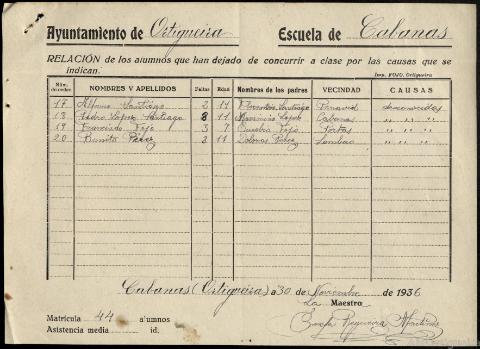 Ayuntamiento de Ortigueira Escuela de Cabanas
RELACIÓN de los alumnos que han dejado de concurrir a clase por las causas que se
indican.
Imp. FOJO. Ortigueira
Núm. de orden NOMBRES Y APELLIDOS Faltas Edad Nombres de los padres VECINDAD CAUSAS
17 Santiago 2 11 Florentino Santiago desconocidas
18 Pedro López Santiago 8 11 López Cabanas " " "
19 Francisco Fojo 3 7 Fojo Portas " " "
20 Benita Pérez 2 11 Dolores Pérez Lombao " " "
Cabanas (Ortigueira) a 30 de Noviembre de 1936
La Maestro
Matrícula 44 alumnos
Asistencia media id.
Josefa Regueira Martínez